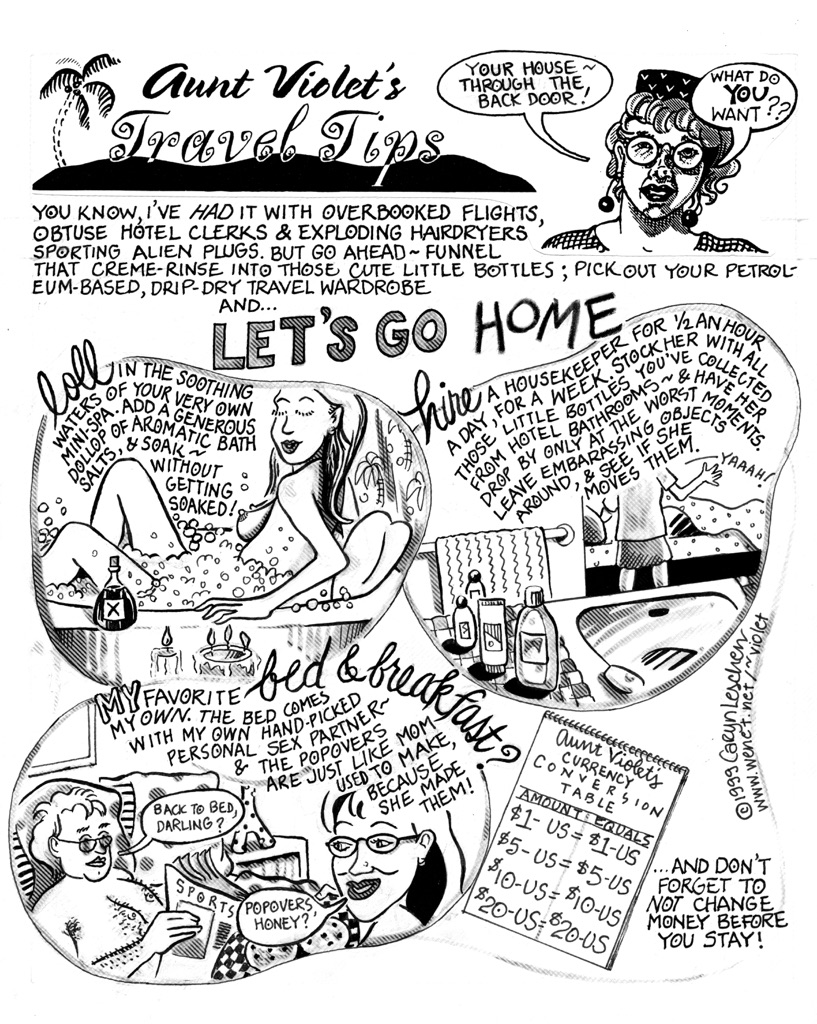 Aunt Violet's
Travel Tips
YOUR HOUSE~
THROUGH THE
BACK DOOR!
WHAT DO
YOU
WANT??
YOU KNOW, I'VE HAD IT WITH OVERBOOKED FLIGHTS,
OBTUSE HOTEL CLERKS & EXPLODING HAIRDRYERS
SPORTING ALIEN PLUGS. BUT GO AHEAD~ FUNNEL
THAT CREME-RINSE INTO THOSE CUTE LITTLE BOTTLES; PICK OUT YOUR PETROL-
EUM-BASED, DRIP-DRY TRAVEL WARDROBE
AND...
LET'S GO HOME
loll IN THE SOOTHING
WATERS OF YOUR VERY OWN
MINI-SPA. ADD A GENEROUS
DOLLOP OF AROMATIC BATH
SALTS, & SOAK~
WITHOUT
GETTING
SOAKED!
X
hire A HOUSEKEEPER FOR 1/2 AN HOUR
A DAY, FOR A WEEK. STOCK HER WITH ALL
THOSE LITTLE BOTTLES YOU'VE COLLECTED
FROM HOTEL BATHROOMS~ & HAVE HER
DROP BY ONLY AT THE WORST MOMENTS.
LEAVE EMBARASSING OBJECTS
AROUND, & SEE IF SHE
MOVES THEM.
YAAAH!
MY FAVORITE bed & breakfast?
MY OWN. THE BED COMES
WITH MY OWN HAND-PICKED
PERSONAL SEX PARTNER~
& THE POPOVERS
ARE JUST LIKE MOM
USED TO MAKE,
BECAUSE
SHE MADE
THEM!
BACK TO BED,
DARLING?
SPORTS
POPOVERS
HONEY?
Aunt Violet's
CURRENCY
CONVERSION
TABLE
AMOUNT: EQUALS
$1-US = $1-US
$5-US = $5-US
$10-US = $10-US
$20-US = $20-US
...AND DON'T
FORGET TO
NOT CHANGE
MONEY BEFORE
YOU STAY!
©1999 Caryn Leschen
www.wenet.net/~violet